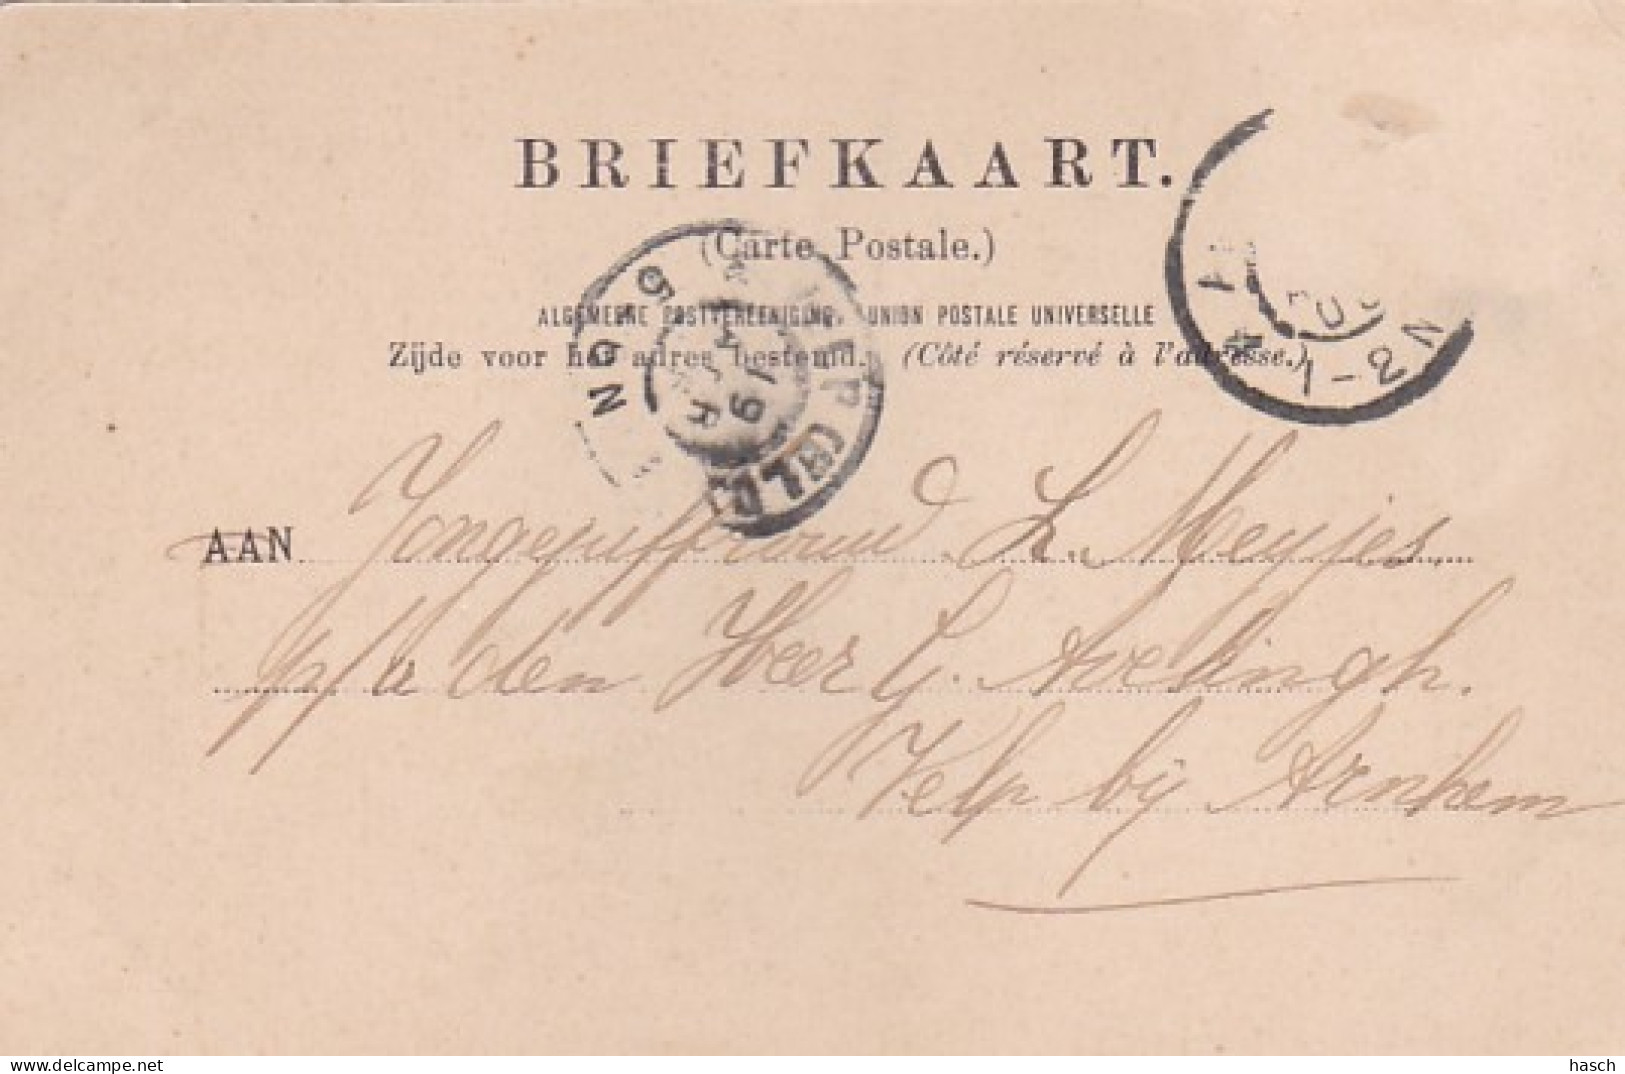 BRIEFKAART.
(Carte Postale.)
ALGEMEENE POSTVEREENIGING. UNION POSTALE UNIVERSELLE
Zijde voor het adres bestemd. (Côté réservé à l'adresse.)
AAN Jongejuffrouw L. Meyjes
p/a den Heer G. Avelingh.
Velp bij Arnhem
1-2N
delcampe.net
hasch